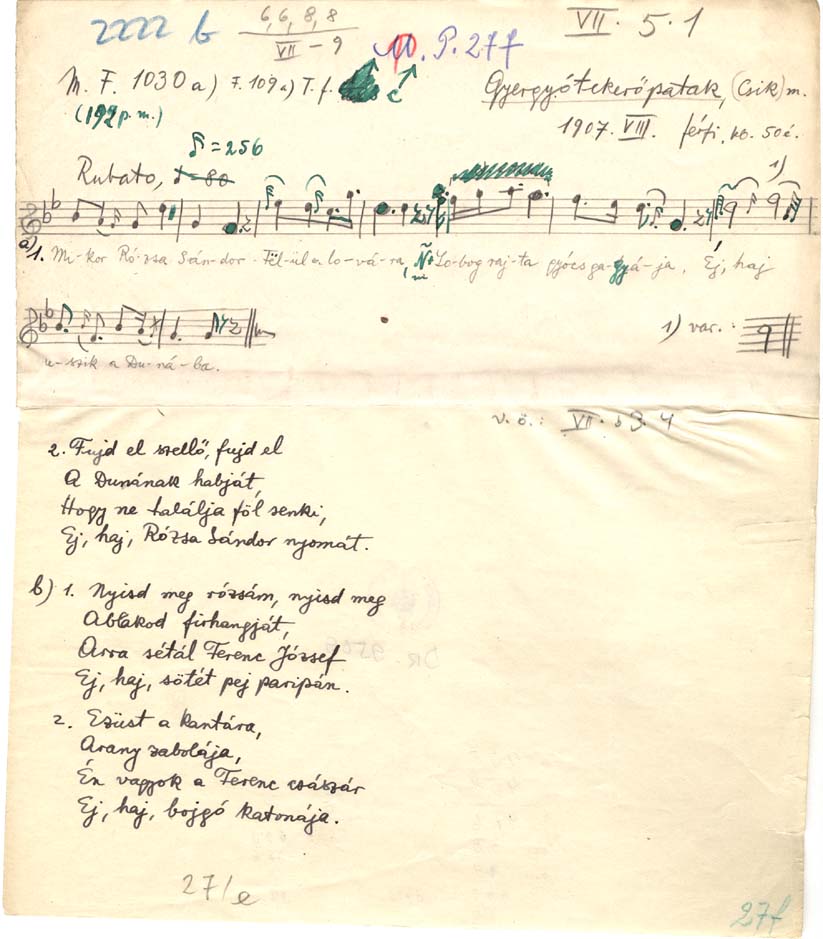 6,6,8,8
VII - 9
VII. 5. 1
M. P. 27f
M. F. 1030 a) F. 109 a) T. f. c
Gyergyótekerőpatak, (Csík) m.
(192 p. m.)
1907. VIII. férfi, kb. 50 é.
= 256
Rubato, = 80
1)
a) 1. Mi-kor Ró-zsa Sán-dor Fël-ül a lo-vá-ra, Lo-bog raj-ta gyócs ga-gyá-ja, Éj, haj
1) var. :
u-szik a Du-ná-ba.
v. ö. : VII.
2. Fujd el szellő, fujd el
A Dunának habját,
Hogy ne találja föl senki,
Ej, haj, Rózsa Sándor nyomát.
b) 1. Nyisd meg rózsám, nyisd meg
Ablakod firhangját,
Arra sétál Ferenc József
Ej, haj, sötét pej paripán.
2. Ezüst a kantára,
Arany zabolája,
Én vagyok a Ferenc császár
Ej, haj, bojgó katonája.
27/e
27f